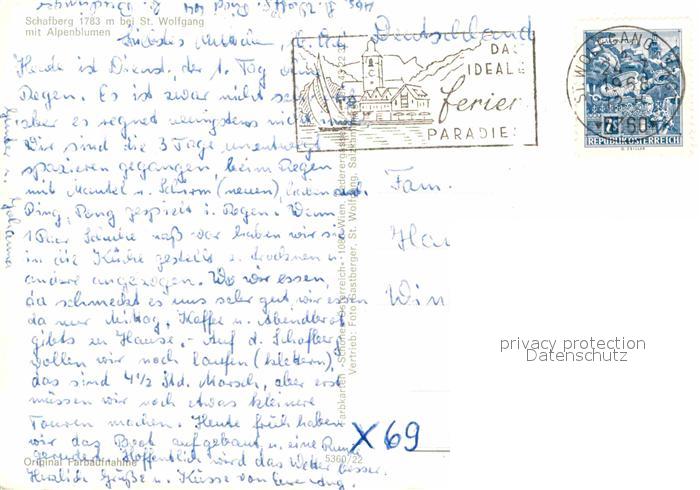 Schafberg 1783 m bei St. Wolfgang
mit Alpenblumen
Deutschland
DAS
IDEALE
Ferien
PARADIES
ST. WOLFGANG
REPUBLIK ÖSTERREICH
Heute ist Dienst., der 1. Tag ohne
Regen. Es ist zwar nicht
aber es regnet wenigstens nicht mehr
Wir sind die 3 Tage unentwegt
spazieren gegangen, beim Regen
mit Mantel u. Schirm (neuen),
Ping, Pong gespielt i. Regen. Wenn
1 Paar Schuhe naß war haben wir sie
in die Küche gestellt u. trocknen u.
andere angezogen. Wo wir essen,
da schmeckt es uns sehr gut, wir essen
da nur Mittag, Kaffee u. Abendbrot
gibts zu Hause. - Auf d. Schafberg
wollen wir noch laufen (klettern),
das sind 4 1/2 Std. Marsch, aber erst
müssen wir noch etwas kleinere
Touren machen. Heute früh haben
wir das Boot aufgebaut u. eine Runde
gerudert. Hoffentlich wird das Wetter besser.
Herzliche Grüße u. Küsse von
Fam.
Ha
Win
privacy protection
Datenschutz
X 69
Original Farbaufnahme
5360/22
Vertrieb: Foto Gastberger, St. Wolfgang, Salzkammergut